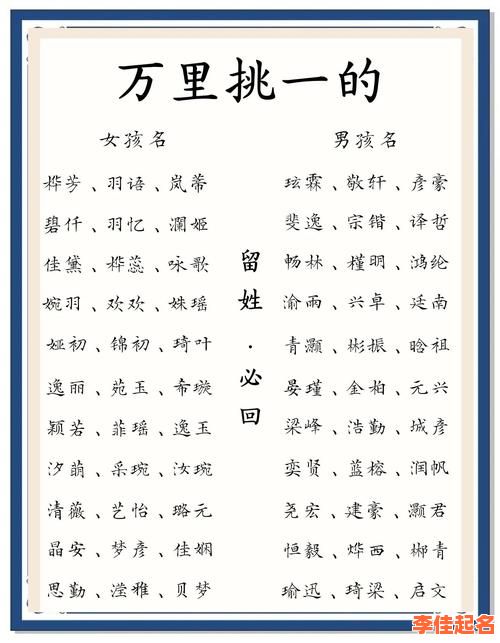 万里挑一的
女孩名
桦芳、羽语、岚蒂
碧仟、羽忆、澜姬
佳黛、桦蕊、咏歌
婉羽、欢欢、姝瑶
娅初、锦初、琦叶
逸丽、苑玉、希璇
颖若、菲瑶、逸玉
汐萌、采琬、汝琬
清薇、艺怡、璐元
晶安、梦彦、佳娴
思勤、滢雅、贝梦
留姓·必回
男孩名
玹霖、敬轩、彦豪
斐逸、宗锴、译哲
畅林、槿明、鸿纶
渝雨、兴卓、廷南
青灏、彬振、晗祖
晏瑾、金柏、元兴
梁峰、浩勤、城彦
奕贤、蓝榕、润帆
尧宏、建豪、灏君
恒毅、烨西、郴青
瑜迅、琦梁、启文
李佳起名